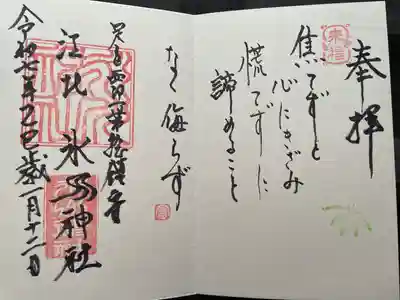 奉拝
焦てずと
心にきざみ
慌てずに
諦めること
なく侮らず
江北氷川神社
令和七年乙巳歳一月十二日